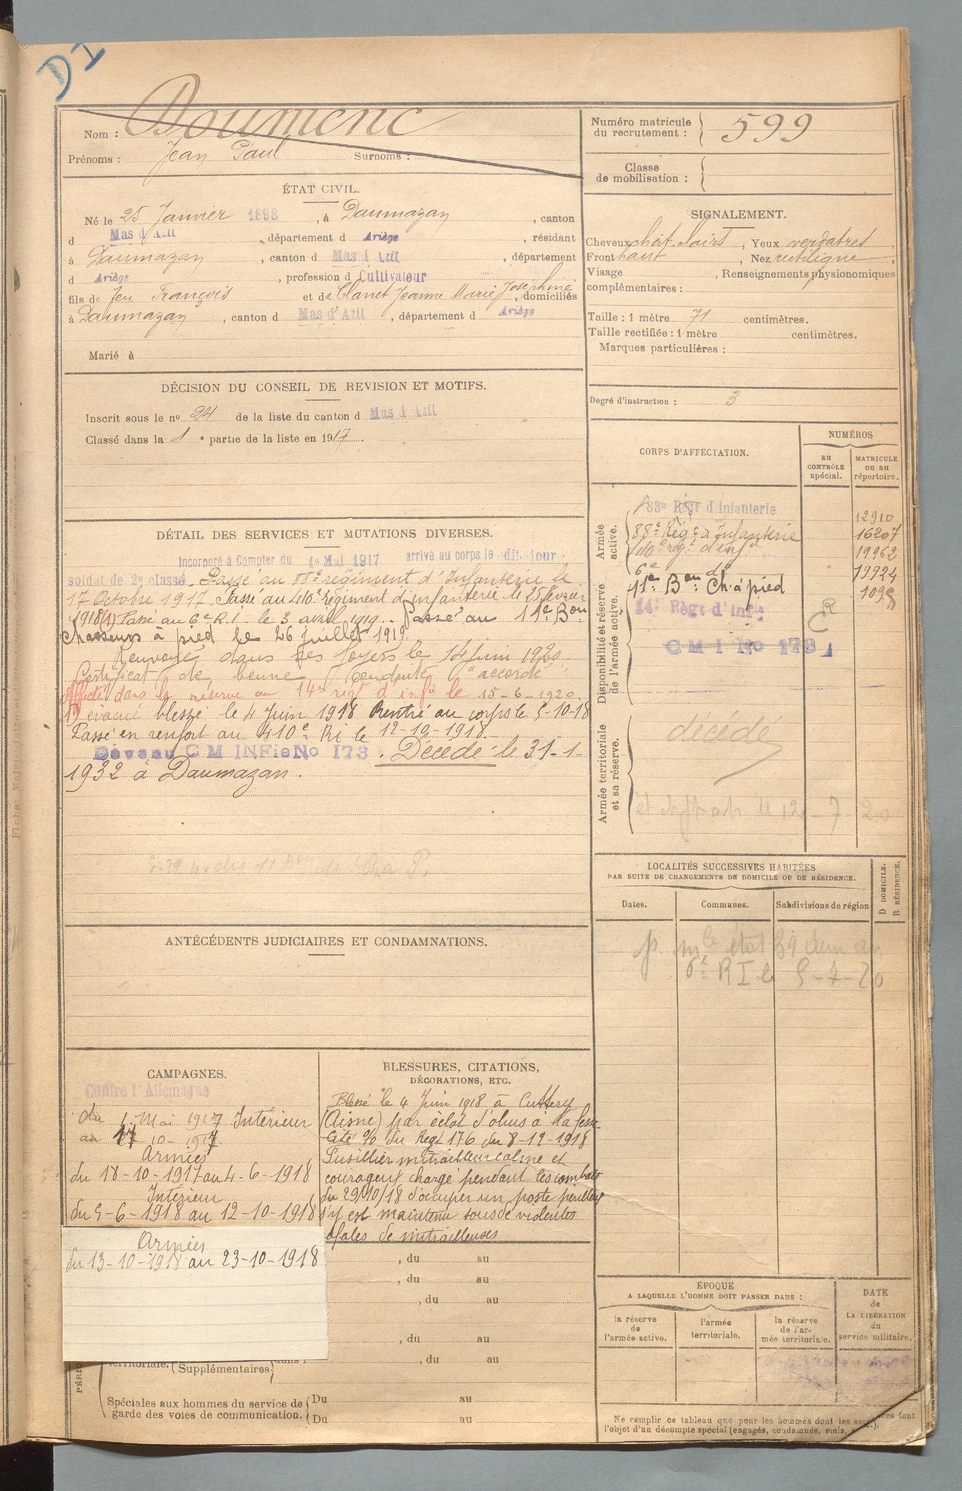 DI
Nom : Doumenc
Prénoms : Jean Paul Surnoms :
Numéro matricule du recrutement : 599
Classe de mobilisation :
ÉTAT CIVIL.
Né le 25 Janvier 1898, à Daumazan, canton
d Mas d'Azil, département d Ariège, résidant
à Daumazan, canton d Mas d'Azil, département
d Ariège, profession d Cultivateur
fils de Jean François et de Claret Jeanne Marie Josephine, domiciliés
à Daumazan, canton d Mas d'Azil, département d Ariège
Marié à
SIGNALEMENT.
Cheveux chât. clairs, Yeux verdatres,
Front haut, Nez rectiligne,
Visage , Renseignements physionomiques
complémentaires :
Taille : 1 mètre 71 centimètres.
Taille rectifiée : 1 mètre centimètres.
Marques particulières :
Degré d'instruction : 3
DÉCISION DU CONSEIL DE REVISION ET MOTIFS.
Inscrit sous le nº 24 de la liste du canton d Mas d'Azil
Classé dans la 1e partie de la liste en 1917.
DÉTAIL DES SERVICES ET MUTATIONS DIVERSES.
Incorporé à Compter du 1er Mai 1917 arrivé au corps le dit jour
soldat de 2e classé. Passé au 88e régiment d'Infanterie le
17 Octobre 1917. Passé au 410e Régiment d'infanterie le 25 février
1918 (1) Passé au 6e R.I. le 3 avril 1919. Passé au 11e Bon
Chasseurs à pied le 26 juillet 1919.
Renvoyé dans ses foyers le juin 1920
Certificat de bonne conduite "accordé"
Affecté dans la réserve au 14e régt d'infie le 15-6-1920.
(1) évacué blessé le 4 Juin 1918 Rentré au corps le 5-10-18
Passé en renfort au 410e RI le 12-10-1918.
CM INFie No 173. Décédé le 31-1-
1932 à Daumazan.
CORPS D'AFFECTATION.
NUMÉROS
au CONTRÔLE spécial.
MATRICULE OU AU répertoire.
Armée active.
83e Régt d'Infanterie 12910
88e Régt d'Infanterie 16207
410e régt d'inf 19962
6e do 19924
11e Bon Ch. à pied
Disponibilité et réserve de l'armée active.
14e Régt d'infie
C M I No 173
Armée territoriale et sa réserve.
décédé
LOCALITÉS SUCCESSIVES HABITÉES
PAR SUITE DE CHANGEMENTS DE DOMICILE OU DE RÉSIDENCE.
Dates. Communes. Subdivisions de région
D DOMICILE.
R RÉSIDENCE.
6e RI le 5-7-20
ANTÉCÉDENTS JUDICIAIRES ET CONDAMNATIONS.
CAMPAGNES.
Contre l'Allemagne
du 1 Mai 1917 Intérieur
au 17-10-1917
Armées
du 18-10-1917 au 4-6-1918
Intérieur
du 5-6-1918 au 12-10-1918
Armées
du 13-10-1918 au 23-10-1918
BLESSURES, CITATIONS,
DÉCORATIONS, ETC.
Blessé le 4 Juin 1918 à
(Aisne) par éclat d'obus à la
Cité O/ du Régt 176 du 8-12-1918
Fusillier mitrailleur calme et
courageux chargé pendant les combats
du 29/10/18 d'occuper un poste périlleux
s'y est maintenu sous de violentes
rafales de mitrailleuses
, du au
, du au
, du au
, du au
, du au
territoriale. Supplémentaires
Spéciales aux hommes du service de garde des voies de communication. Du au
Du au
ÉPOQUE
A LAQUELLE L'HOMME DOIT PASSER DANS :
la réserve de l'armée active.
l'armée territoriale.
la réserve de l'armée territoriale.
DATE de LA LIBÉRATION du service militaire.
Ne remplir ce tableau que pour les hommes dont les services font
l'objet d'un décompte spécial (engagés, condamnés, omis,